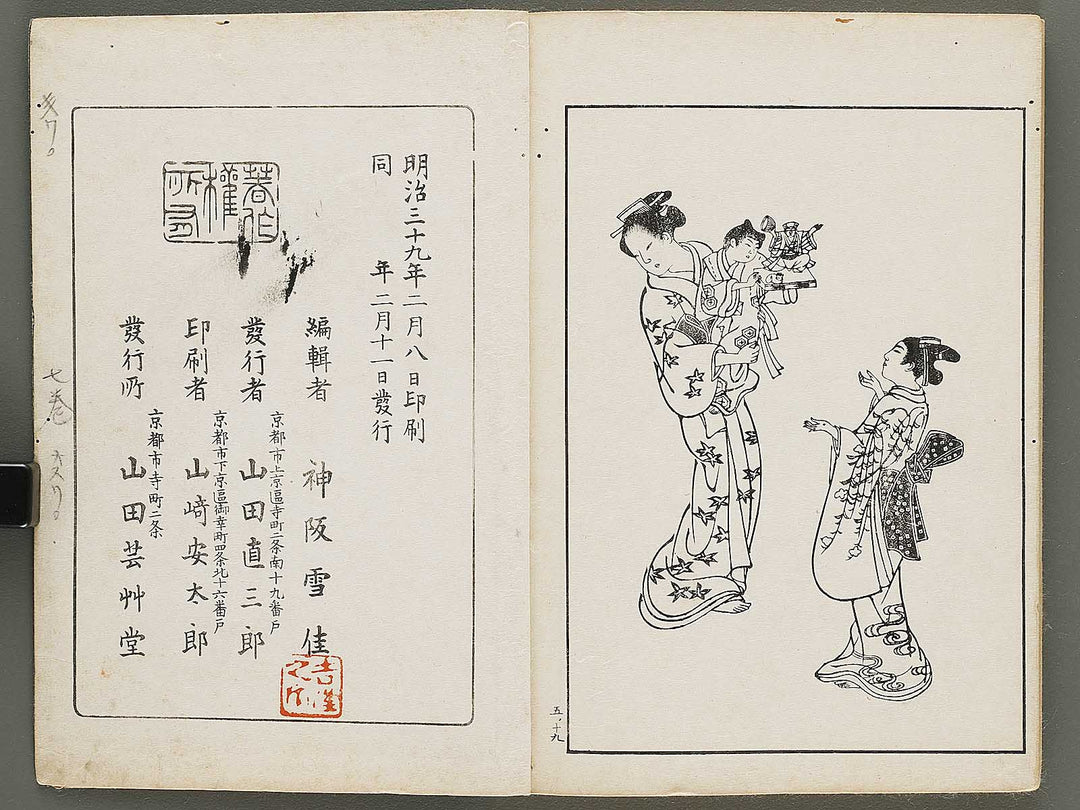 五ノ十九
明治三十九年二月八日印刷
同年二月十一日發行
編輯者 神阪雪佳
京都市上京區寺町二条南十九番戸
發行者 山田直三郎
京都市下京區御幸町四条北十六番戸
印刷者 山﨑安太郎
京都市寺町二条
發行所 山田芸艸堂
著作
權
所有
七巻